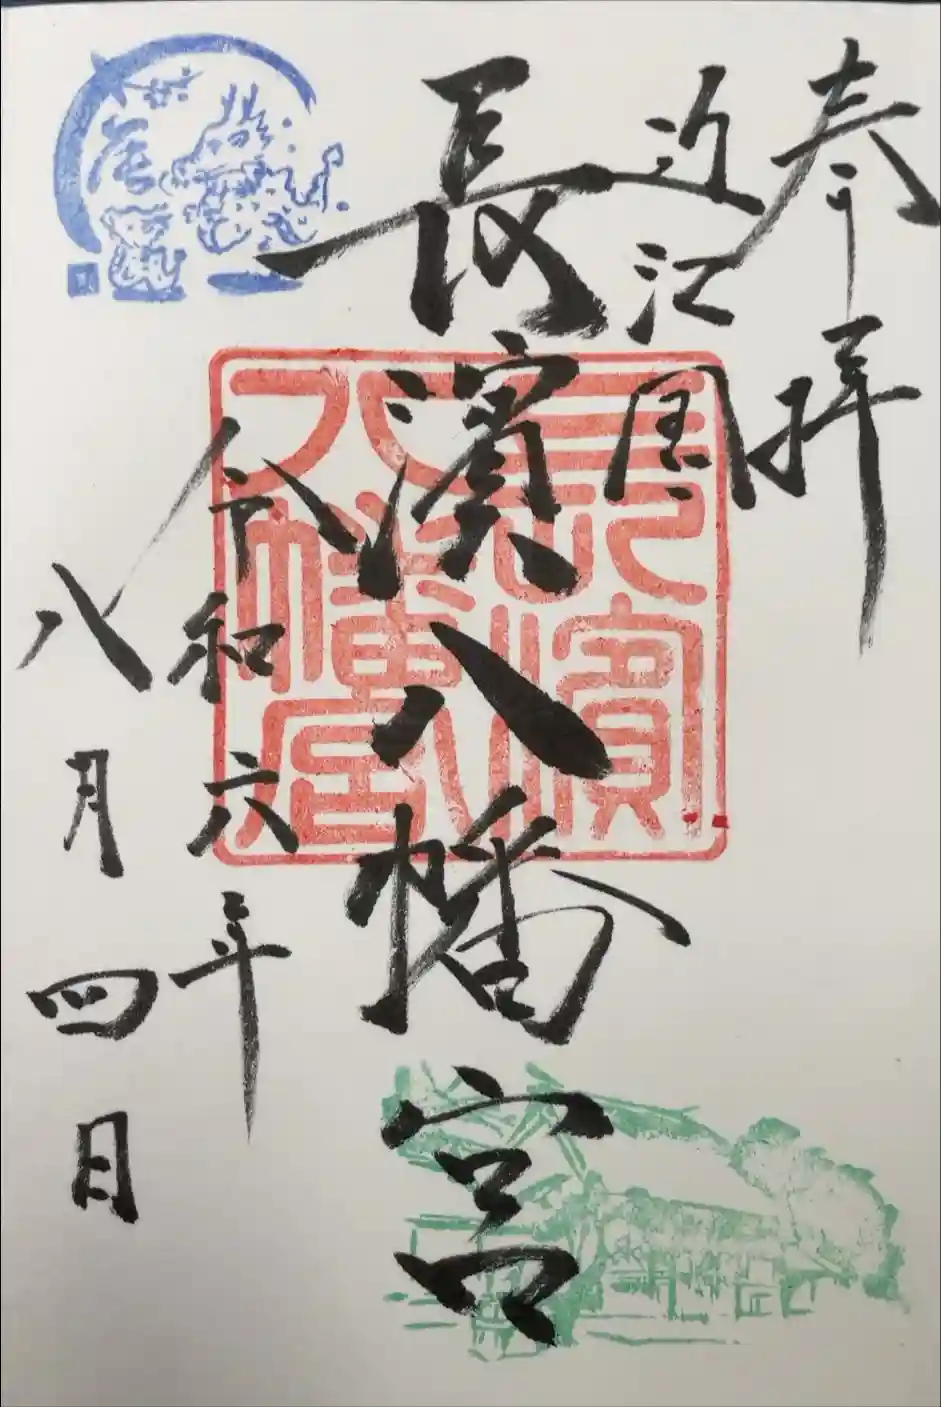 奉拝
近江国
長濱八幡宮
長濱八幡宮
令和六年
八月四日
辰